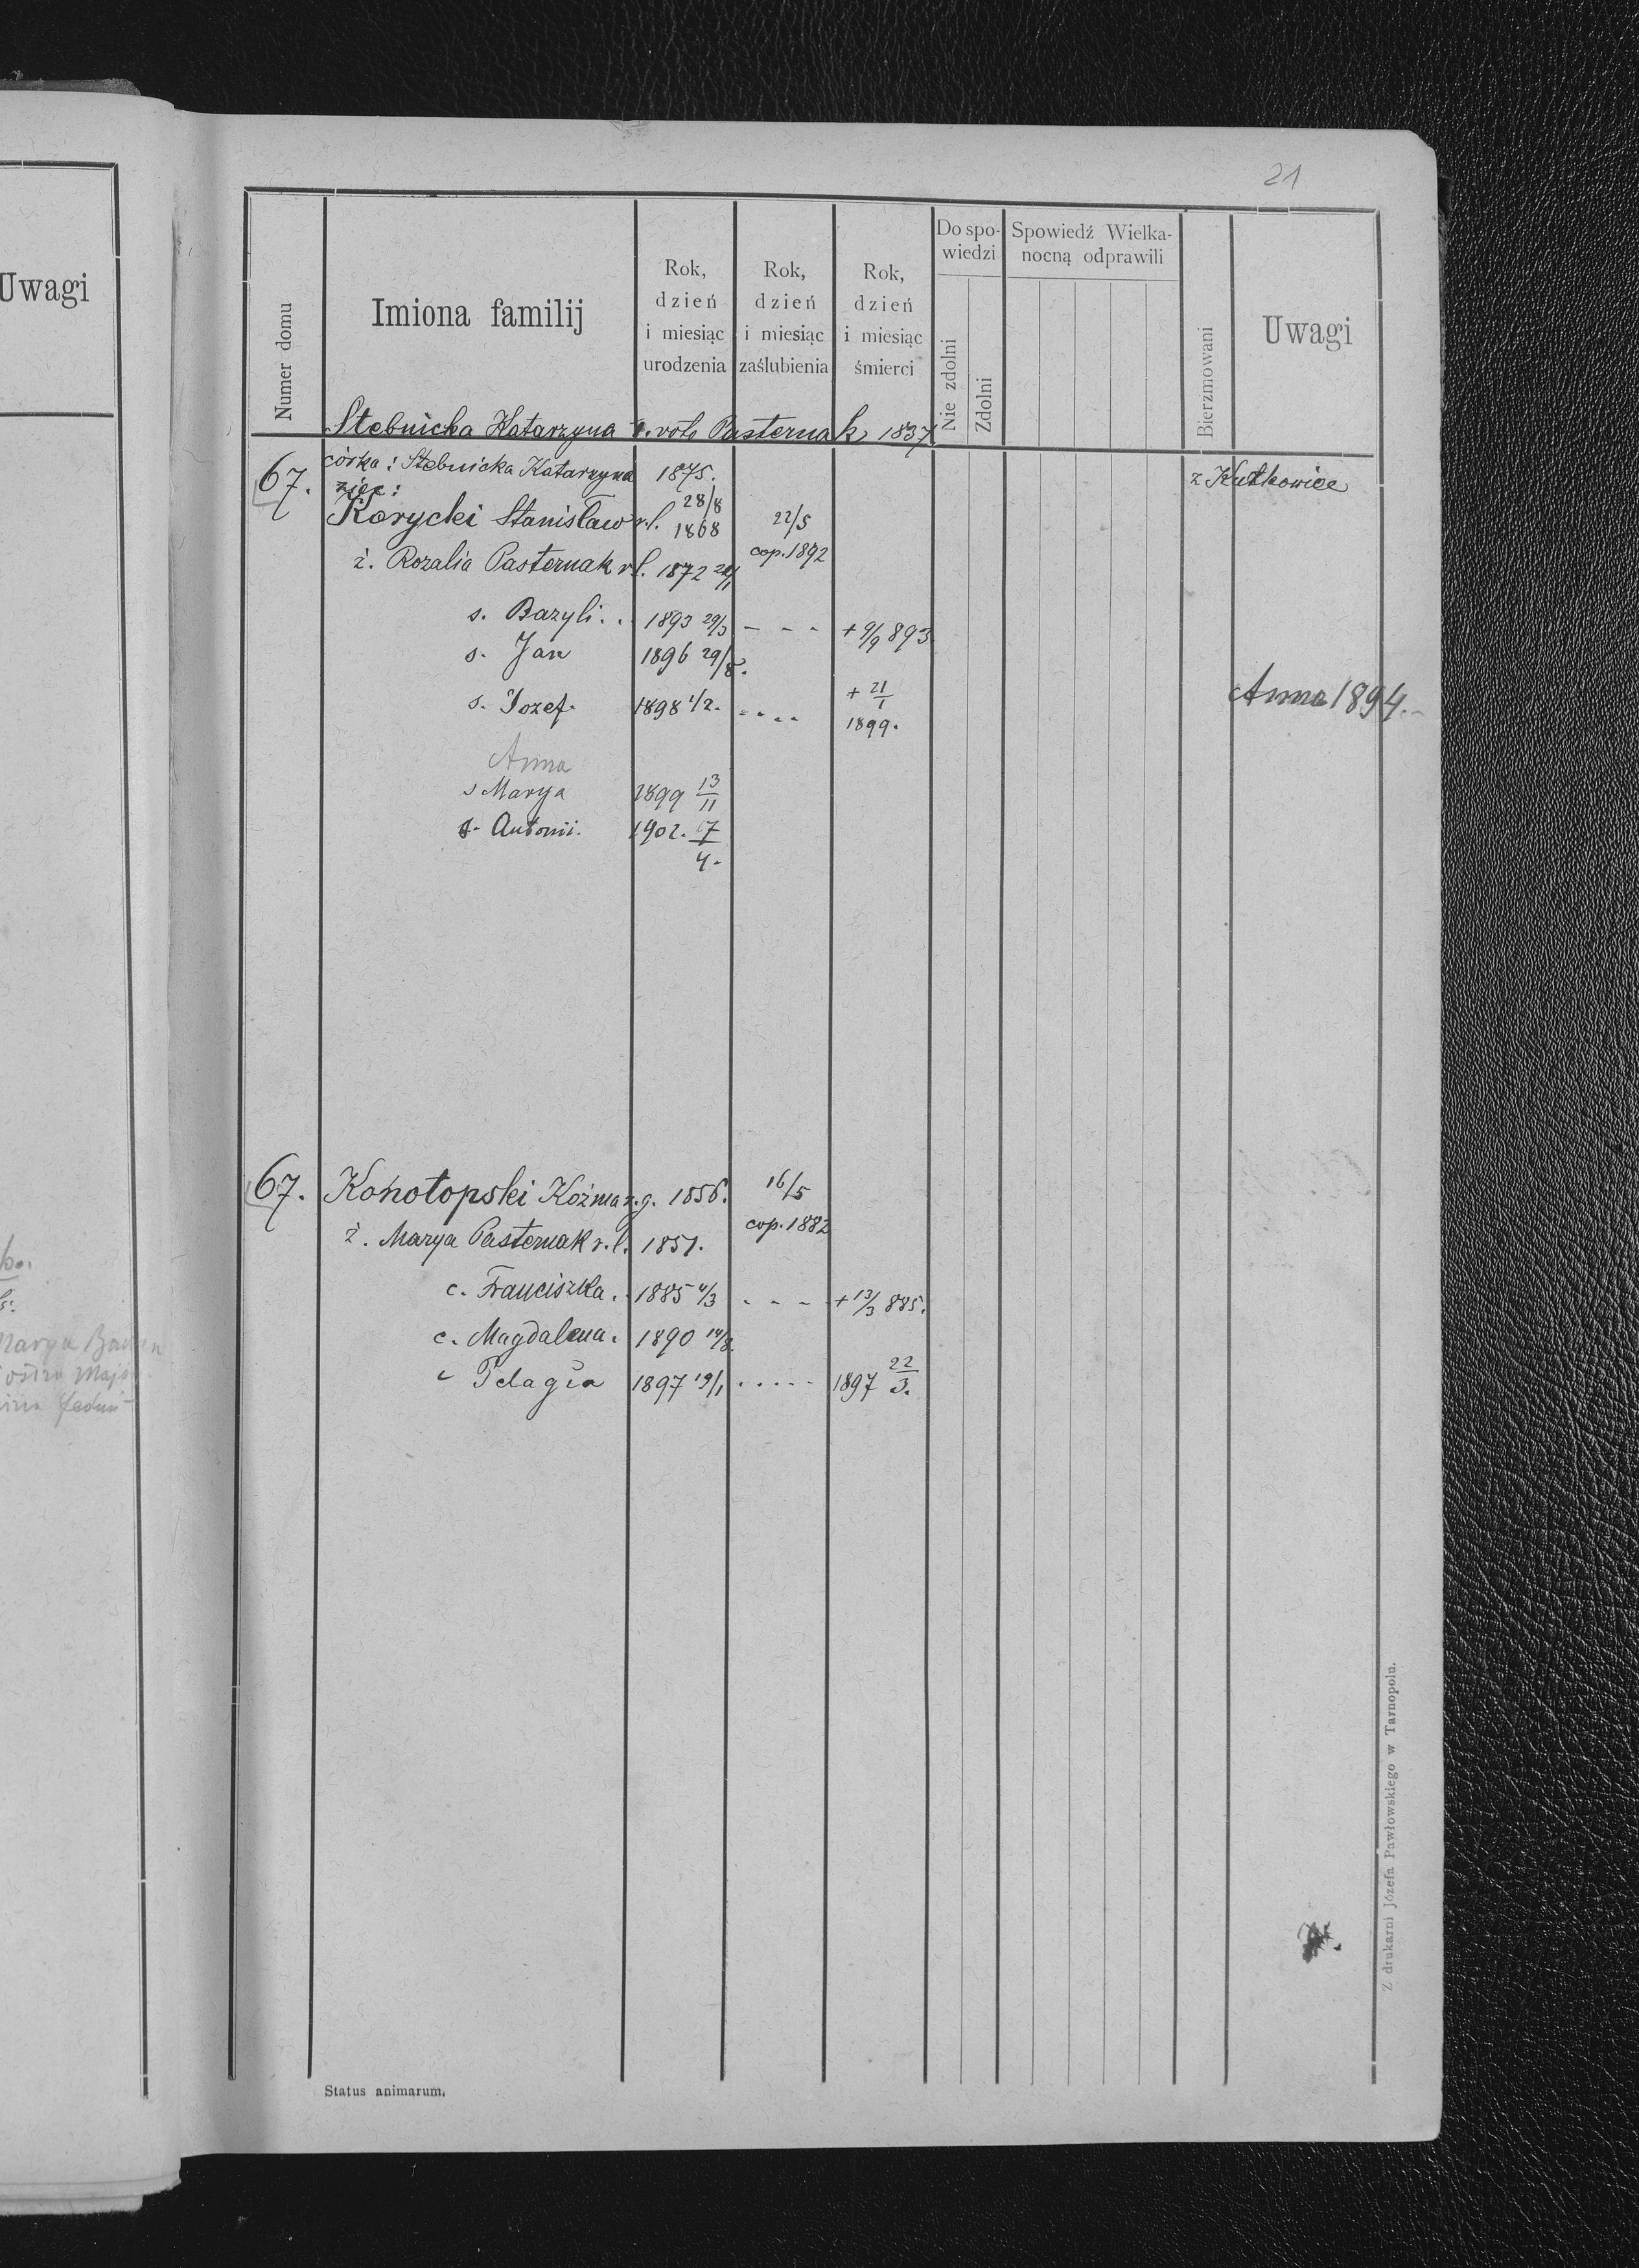 21
Uwagi
Numer domu
Imiona familij
Rok,
dzień
i miesiąc
urodzenia
Rok,
dzień
i miesiąc
zaślubienia
Rok,
dzień
i miesiąc
śmierci
Do spo-
wiedzi
Nie zdolni
Zdolni
Spowiedź Wielka-
nocną odprawili
Bierzmowani
Uwagi
Stebnicka Katarzyna voto Pasternak 1837
67. córka: Stebnicka Katarzyna 1875. z Kutkowiec
zięć:
Korycki Stanisław r.l. 28/8 1868 22/5
ż. Rozalia Pasternak r.l. 1872 cop. 1892
s. Bazyli.. 1893 29/3 - - - + 9/9 893
s. Jan 1896 29/8.
s. Jozef. 1898 1/2. .... + 21/1 1899. Anna 1894.-
Anna
s Marya 1899 13/11
s. Antonii. 1902. 17/4.
67. Konotopski Koźma r.g. 1856. 16/5
ż. Marya Pasternak r.l. 1851. cop. 1882
c. Franciszka. 1885 4/3 - - - + 13/3 885.
c. Magdalena. 1890 14/8.
c Pelagia 1897 19/1 ..... 1897 22/3.
Marya
Z drukarni Józefa Pawłowskiego w Tarnopolu.
Status animarum.